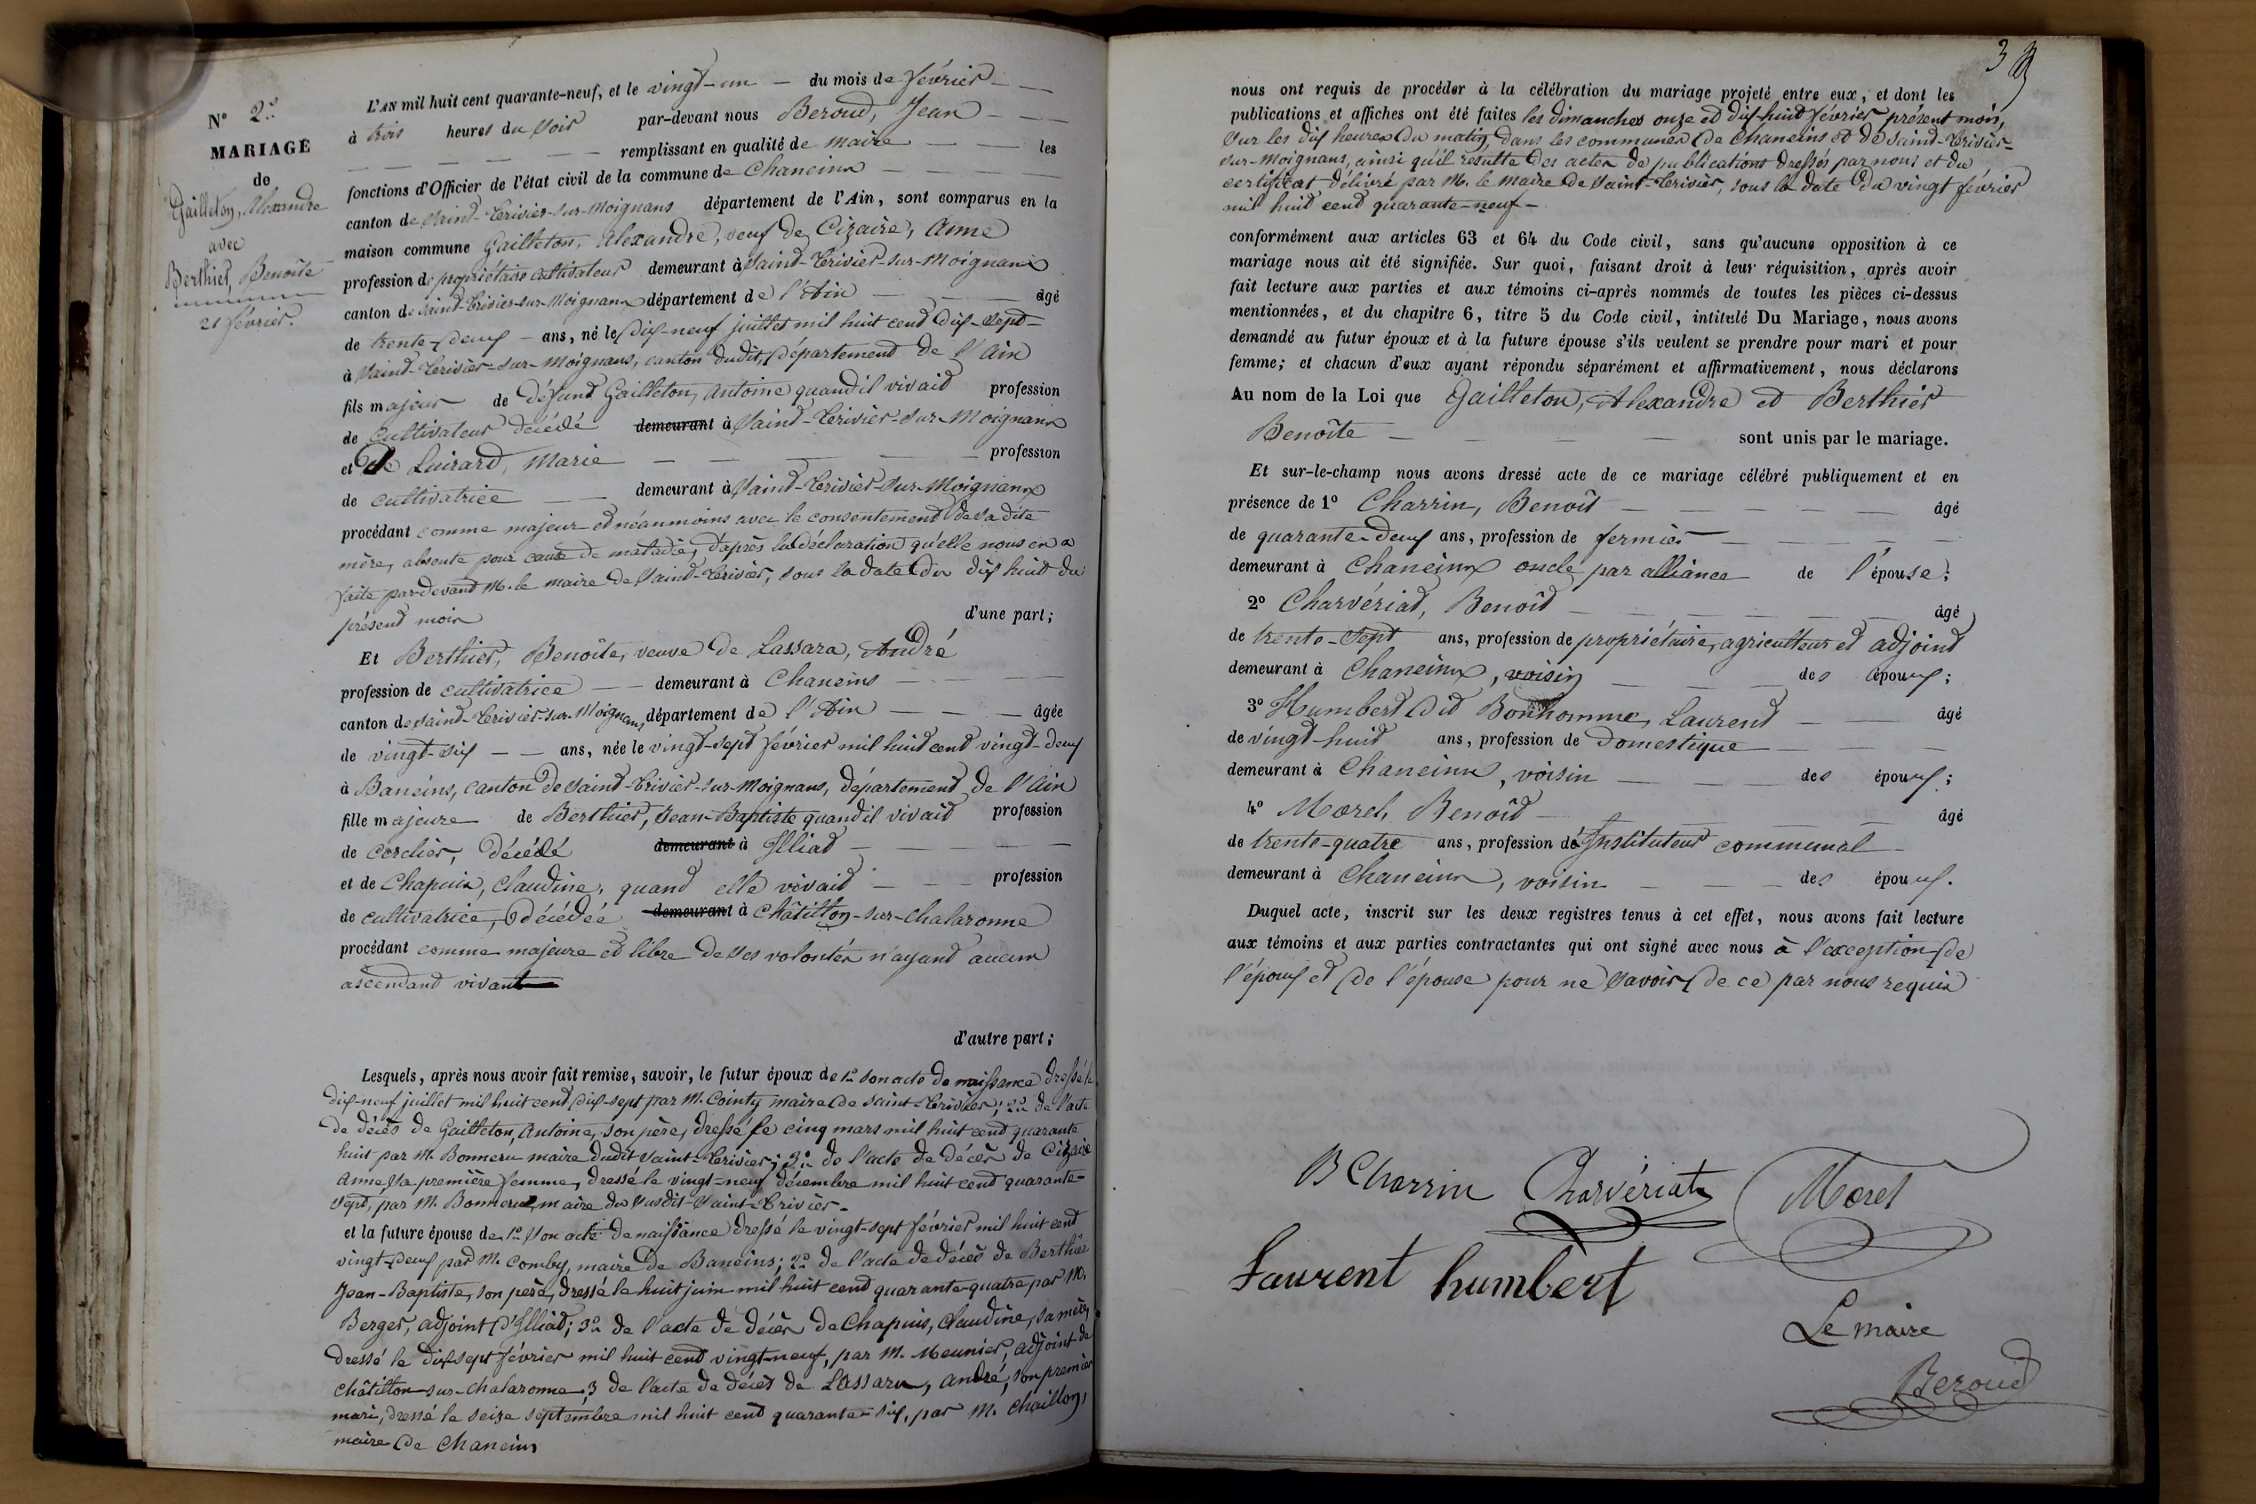 N° 2.
MARIAGE
de
Gailleton, Alexandre
avec
Berthier, Benoîte
21 février.
L'AN mil huit cent quarante-neuf, et le vingt-un — du mois de février —
à trois heures du soir par-devant nous Beroud, Jean —
— remplissant en qualité de maire — les
fonctions d'Officier de l'état civil de la commune de Chaneins —
canton de Saint-Trivier-sur-Moignans département de l'Ain, sont comparus en la
maison commune Gailleton, Alexandre, veuf de Cizaire, Anne
profession de propriétaire cultivateur demeurant à Saint-Trivier-sur-Moignans
canton de Saint-Trivier-sur-Moignans département de l'Ain — âgé
de trente-deux — ans, né le dix-neuf juillet mil huit cent dix-sept —
à Saint-Trivier-sur-Moignans, canton dudit, département de l'Ain
fils majeur de défunt Gailleton, Antoine quand il vivait profession
de cultivateur décédé demeurant à Saint-Trivier-sur-Moignans
et de Luirard, Marie — profession
de cultivatrice — demeurant à Saint-Trivier-sur-Moignans
procédant comme majeur et néanmoins avec le consentement de sa dite
mère, absente pour cause de maladie, d'après la déclaration qu'elle nous en a
faite par-devant M. le maire de Saint-Trivier, sous la date du dix huit du
présent mois
d'une part;
Et Berthier, Benoîte, veuve de Lassara, André
profession de cultivatrice — demeurant à Chaneins —
canton de Saint-Trivier-sur-Moignans, département de l'Ain — âgée
de vingt-six — ans, née le vingt-sept février mil huit cent vingt-deux
à Baneins, canton de Saint-Trivier-sur-Moignans, département de l'Ain
fille majeure de Berthier, Jean-Baptiste quand il vivait profession
de cerclier, décédé demeurant à Illiat —
et de Chapuis, Claudine, quand elle vivait — profession
de cultivatrice, décédée demeurant à Châtillon-sur-Chalaronne
procédant comme majeure et libre de ses volontés n'ayant aucun
ascendant vivant
d'autre part;
Lesquels, après nous avoir fait remise, savoir, le futur époux de 1° son acte de naissance dressé le
dix-neuf juillet mil huit cent dix-sept par M. Cointy maire de Saint-Trivier; 2° de l'acte
de décès de Gailleton, Antoine, son père, dressé le cinq mars mil huit cent quarante
huit par M. Bonneru maire dudit Saint-Trivier; 3° de l'acte de décès de Cizaire
Anne, sa première femme, dressé le vingt-neuf décembre mil huit cent quarante-
sept, par M. Bonneru, maire du susdit Saint-Trivier.
et la future épouse de 1° son acte de naissance dressé le vingt-sept février mil huit cent
vingt-deux par M. Comby, maire de Baneins; 2° de l'acte de décès de Berthier
Jean-Baptiste, son père, dressé le huit juin mil huit cent quarante-quatre par M.
Berger, adjoint d'Illiat; 3° de l'acte de décès de Chapuis, Claudine, sa mère,
dressé le dix-sept février mil huit cent vingt-neuf, par M. Meunier, adjoint de
Châtillon-sur-Chalaronne 3 de l'acte de décès de Lassara, André, son premier
mari, dressé le seize septembre mil huit cent quarante-six, par M. Chaillon,
maire de Chaneins
3
nous ont requis de procéder à la célébration du mariage projeté entre eux, et dont les
publications et affiches ont été faites les dimanches onze et dix-huit février présent mois,
sur les dix heures du matin, dans les communes de Chaneins et de Saint-Trivier-
sur-Moignans, ainsi qu'il résulte des actes de publications dressés par nous et du
certificat délivré par M. le maire de Saint-Trivier, sous la date du vingt février
mil huit cent quarante-neuf —
conformément aux articles 63 et 64 du Code civil, sans qu'aucune opposition à ce
mariage nous ait été signifiée. Sur quoi, faisant droit à leur réquisition, après avoir
fait lecture aux parties et aux témoins ci-après nommés de toutes les pièces ci-dessus
mentionnées, et du chapitre 6, titre 5 du Code civil, intitulé Du Mariage, nous avons
demandé au futur époux et à la future épouse s'ils veulent se prendre pour mari et pour
femme; et chacun d'eux ayant répondu séparément et affirmativement, nous déclarons
Au nom de la Loi que Gailleton, Alexandre et Berthier
Benoîte — sont unis par le mariage.
Et sur-le-champ nous avons dressé acte de ce mariage célébré publiquement et en
présence de 1° Charrin, Benoît — âgé
de quarante-deux ans, profession de fermier —
demeurant à Chaneins oncle par alliance de l'épouse;
2° Charvériat, Benoît — âgé
de trente-sept ans, profession de propriétaire, agriculteur et adjoint
demeurant à Chaneins, voisin — des époux;
3° Humbert dit Bonhomme, Laurent — âgé
de vingt-huit ans, profession de Domestique —
demeurant à Chaneins, voisin — des époux;
4° Morel, Benoît — âgé
de trente-quatre ans, profession d'Instituteur communal —
demeurant à Chaneins, voisin — des époux.
Duquel acte, inscrit sur les deux registres tenus à cet effet, nous avons fait lecture
aux témoins et aux parties contractantes qui ont signé avec nous à l'exception de
l'époux et de l'épouse pour ne savoir de ce par nous requis
B Charrin Charvériat Morel
Laurent humbert
Le maire
Beroud